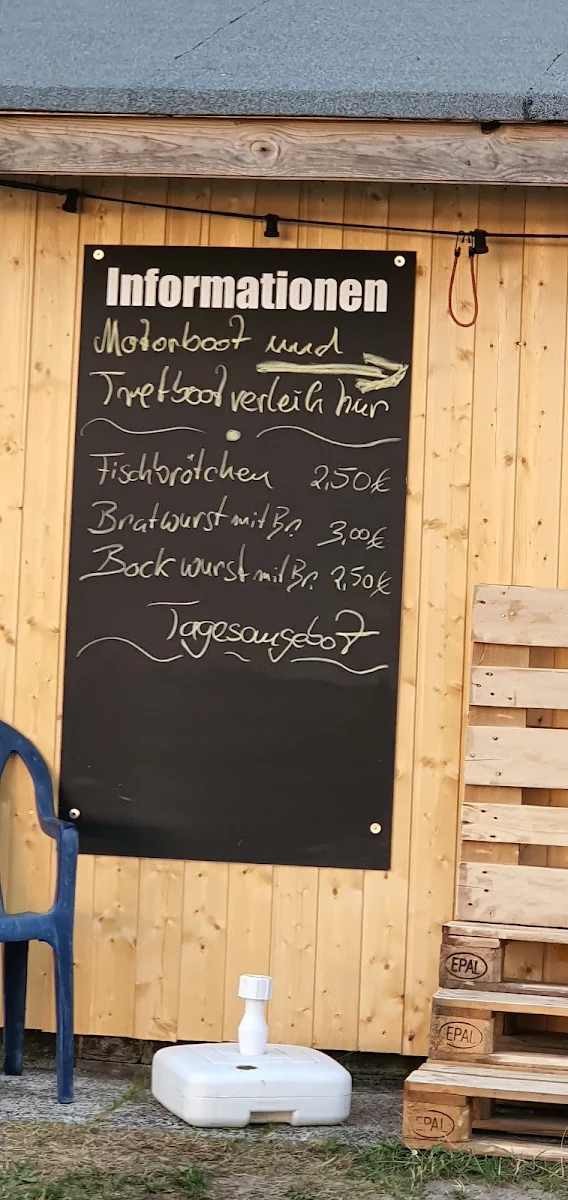 Informationen
Motorboot und
Tretbootverleih hier
Fischbrötchen 2,50€
Bratwurst mit Br. 3,00€
Bockwurst mit Br. 2,50€
Tagesangebot
EPAL
EPAL
EPAL